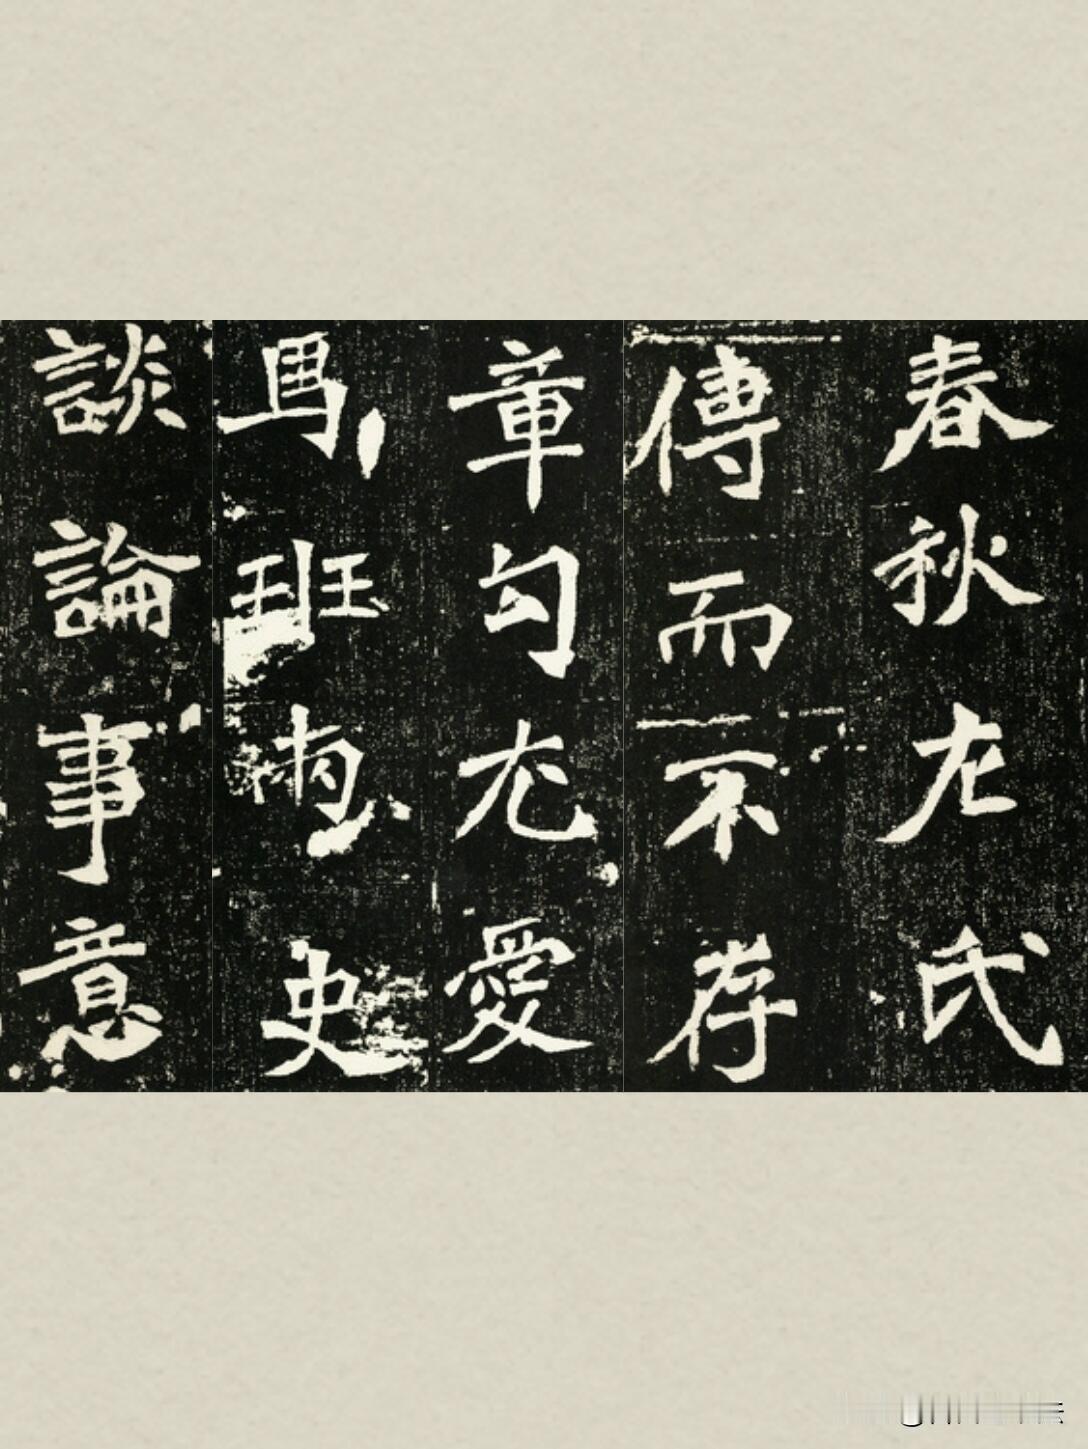 春秋左氏
傳而不存
章句尤愛
馬班兩史
談論事意